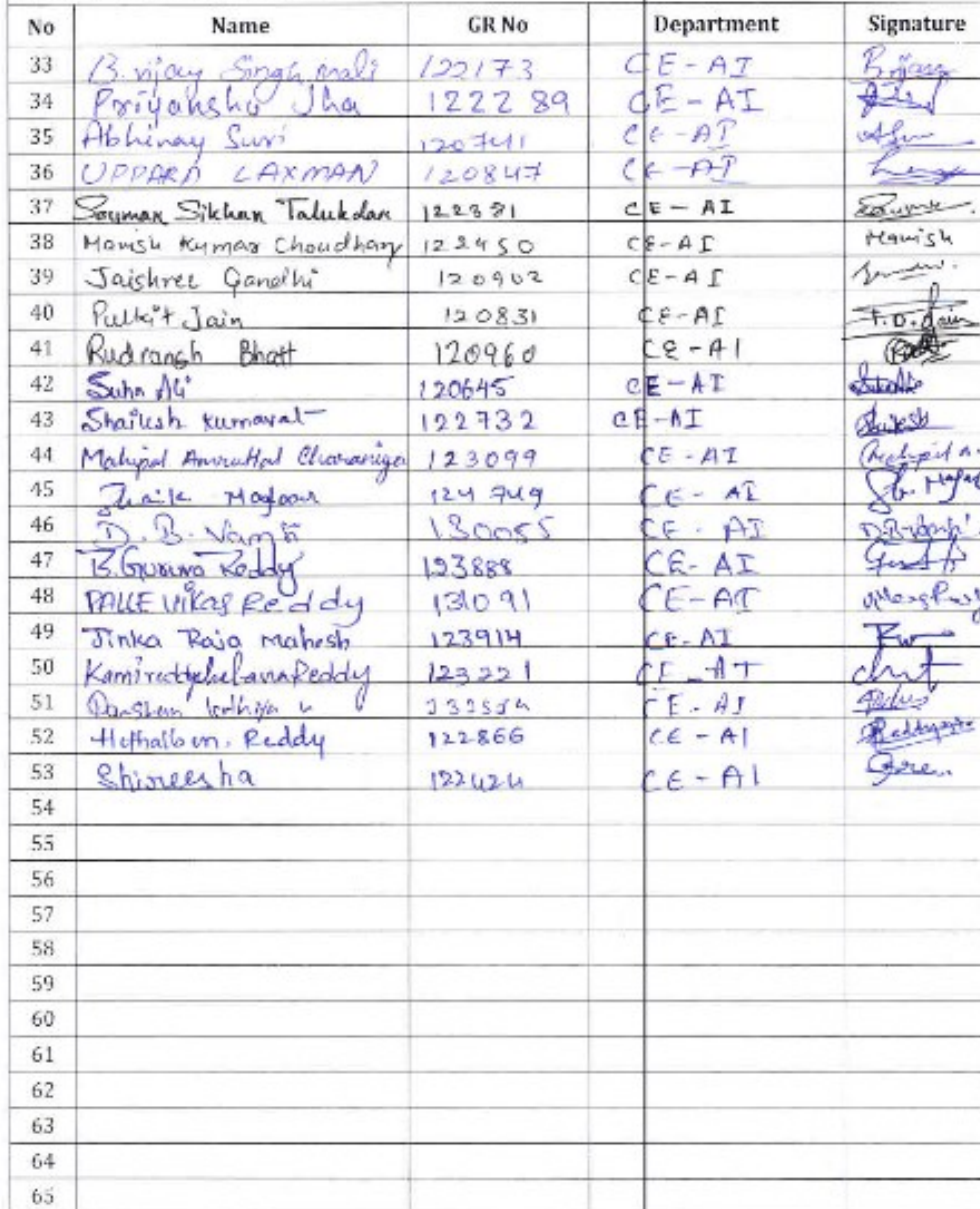 No Name GR No Department Signature
33 B. vijay Singh mali 122173 CE-AI B.vijay
34 Priyanshu Jha 122289 CE-AI
35 Abhinay Suri 120741 CE-AI
36 UPPARA LAXMAN 120847 CE-AI
37 Souman Sikhan Talukdar 122381 CE-AI
38 Manish Kumar Choudhary 122450 CE-AI Manish
39 Jaishree Gandhi 120902 CE-AI
40 Pulkit Jain 120831 CE-AI
41 Rudransh Bhatt 120960 CE-AI
42 Suha Ali 120645 CE-AI
43 Shailesh Kumaval 122732 CE-AI
44 Mahipal 123099 CE-AI
45 Shaik 124749 CE-AI
46 D. B. Vamsi 130055 CE-AI
47 Reddy 123888 CE-AI
48 PALLE VIKAS Reddy 131091 CE-AI
49 Jinka Raja Mahesh 123914 CE-AI
50 Reddy 123221 CE-AI
51 CE-AI
52 Reddy 122866 CE-AI
53 Shireesha 122424 CE-AI
54
55
56
57
58
59
60
61
62
63
64
65